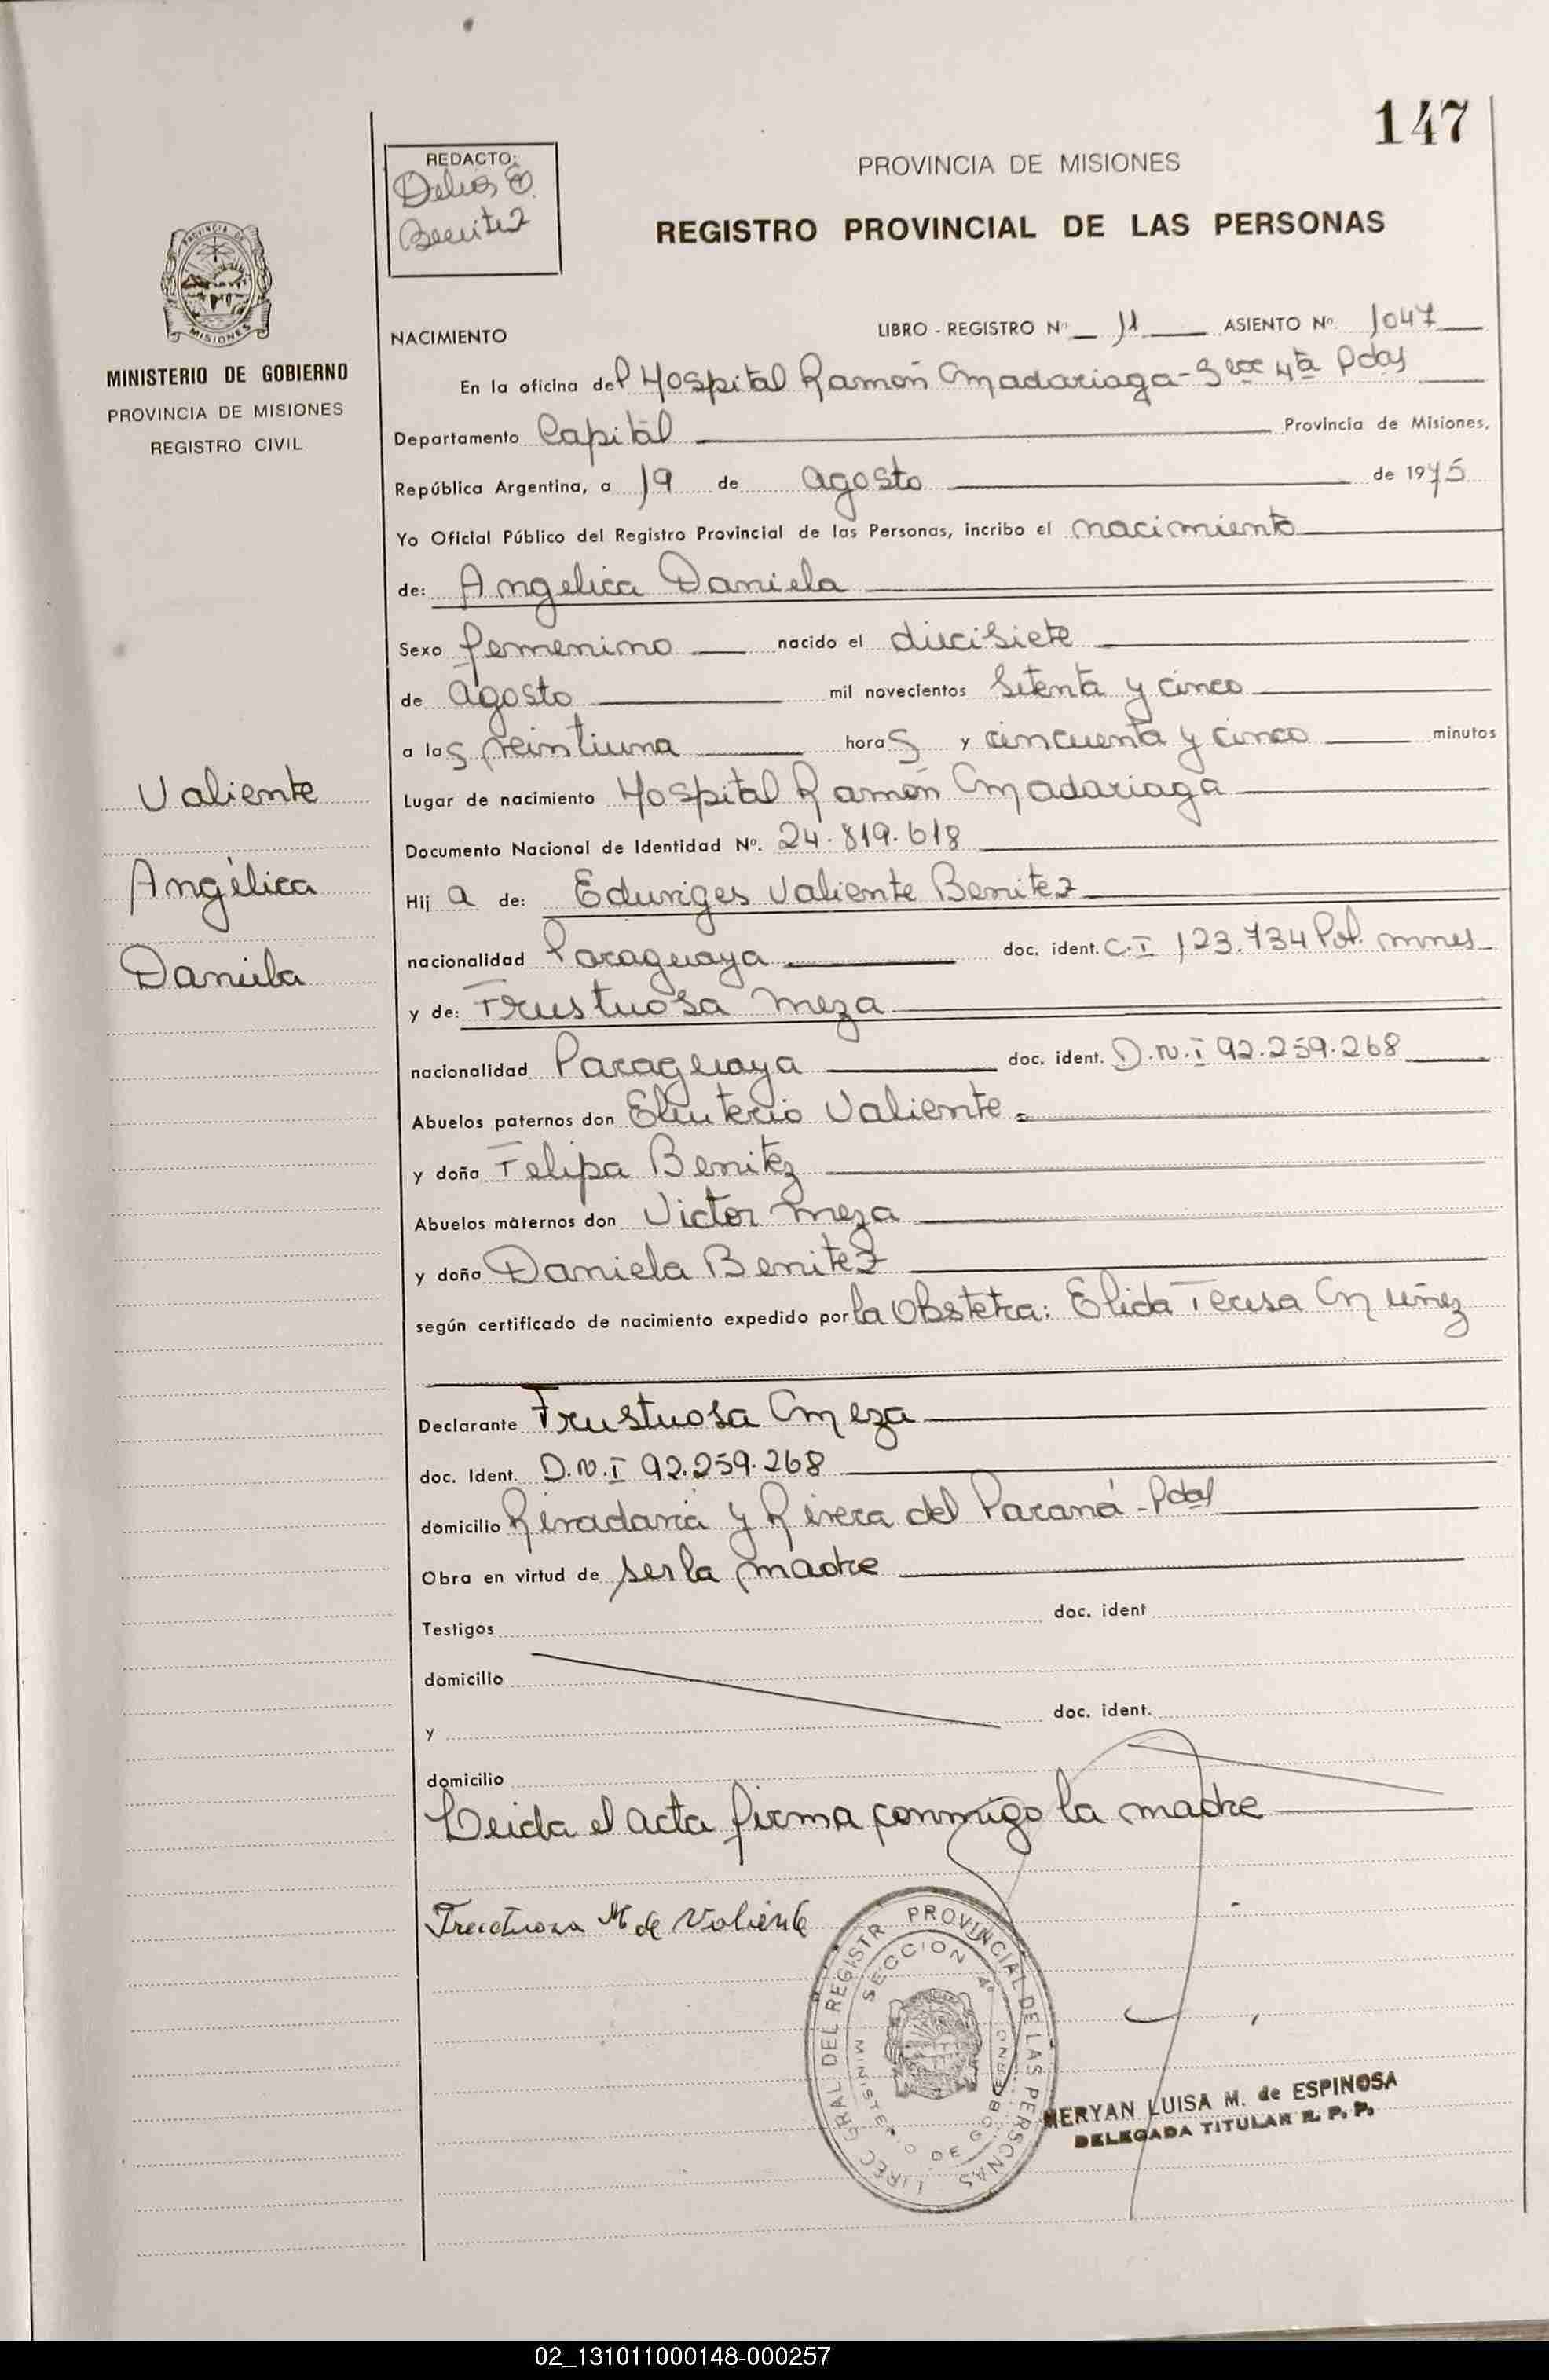 147
REDACTO:
Delia E.
Benitez
PROVINCIA DE MISIONES
REGISTRO PROVINCIAL DE LAS PERSONAS
MISIONES
MINISTERIO DE GOBIERNO
PROVINCIA DE MISIONES
REGISTRO CIVIL
NACIMIENTO
LIBRO - REGISTRO Nº 11 ASIENTO Nº 1047
En la oficina del Hospital Ramón Madariaga - Secc 4ta Pdas
Departamento Capital Provincia de Misiones,
República Argentina, a 19 de agosto de 1975
Yo Oficial Público del Registro Provincial de las Personas, incribo el nacimiento
de: Angelica Daniela
Sexo femenino nacido el diecisiete
de agosto mil novecientos setenta y cinco
a las veintiuna horas y cincuenta y cinco minutos
Valiente
Lugar de nacimiento Hospital Ramón Madariaga
Documento Nacional de Identidad Nº. 24.819.618
Angélica
Hij a de: Eduviges Valiente Benitez
Daniela
nacionalidad Paraguaya doc. ident. C.I 123.734 Pol. mnes
y de: Frustuosa Meza
nacionalidad Paraguaya doc. ident. D.N.I 92.259.268
Abuelos paternos don Eleuterio Valiente
y doña Felipa Benitez
Abuelos maternos don Victor Meza
y doña Daniela Benitez
según certificado de nacimiento expedido por la Obstetra: Elida Teresa Muñez
Declarante Frustuosa Meza
doc. Ident. D.N.I 92.259.268
domicilio Rivadavia y Rivera del Paraná - Pdas
Obra en virtud de ser la madre
Testigos doc. ident
domicilio
y doc. ident.
domicilio
Leida el acta firma conmigo la madre
Fructuosa M de Valiente
DIREC GRAL. DEL REGISTR PROVINCIAL DE LAS PERSONAS
SECCION 4º
MINISTERIO DE GOBIERNO
MERYAN LUISA M. de ESPINOSA
DELEGADA TITULAR R. P. P.
02_131011000148-000257